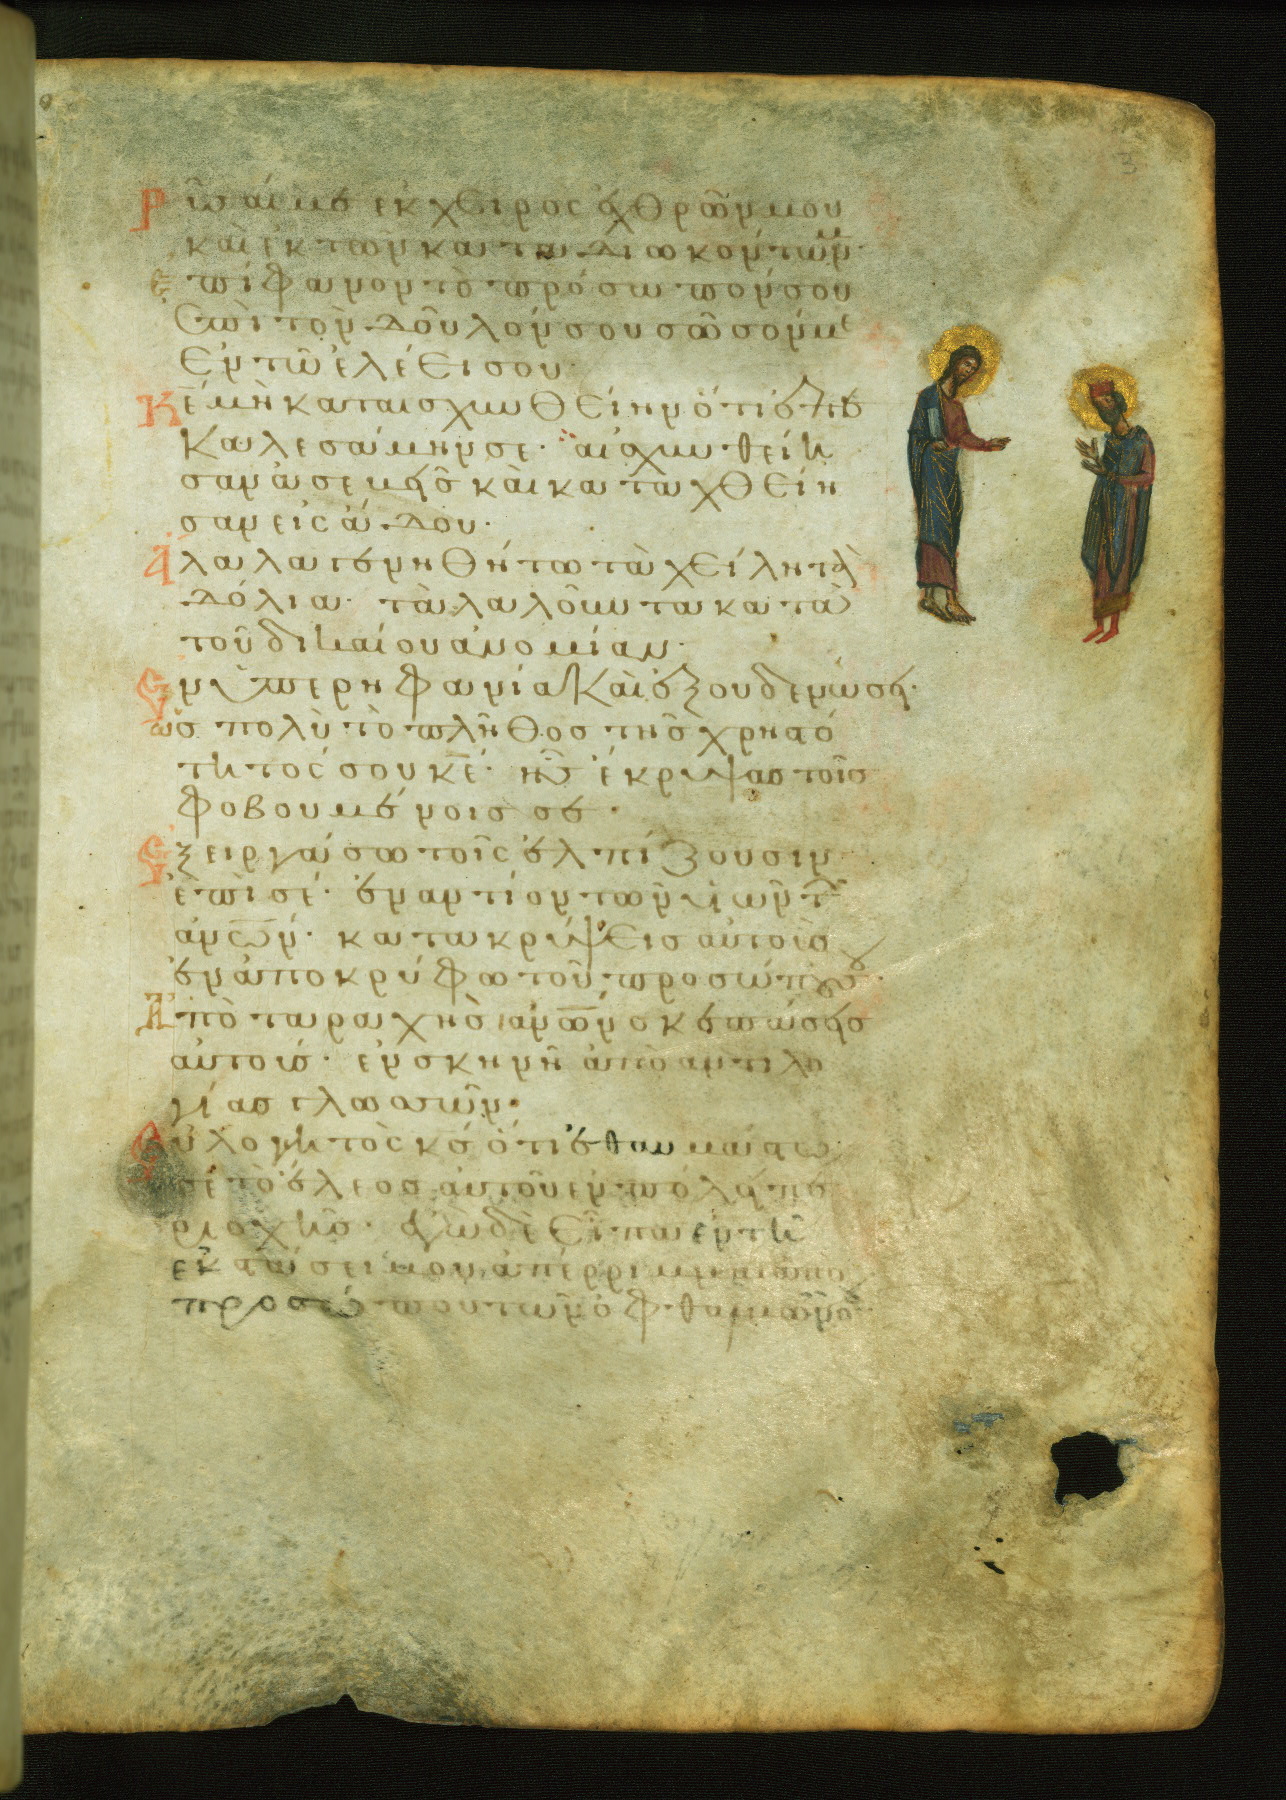 Ρῦσαί με ἐκ χειρὸς ἐχθρῶν μου
καὶ ἐκ τῶν καταδιωκόντων με
Ἐπίφανον τὸ πρόσωπόν σου
ἐπὶ τὸν δοῦλόν σου σῶσόν με
ἐν τῶ ἐλέει σου·
Κε μὴ καταισχυνθείην ὅτι ἐπε
καλεσάμην σε· αἰσχυνθείη
σαν ἀσεβεῖς καὶ καταχθείη
σαν εἰς ἅδου·
Ἄλαλα γενηθήτω τὰ χείλη τὰ
δόλια· τὰ λαλοῦντα κατὰ
τοῦ δικαίου ἀνομίαν·
Ἐν ὑπερηφανία καὶ ἐξουδενώσει·
ὡς πολὺ τὸ πλῆθος τῆς χρηστό
τητός σου κε· ἧς ἔκρυψας τοῖς
φοβουμένοις σε·
Ἐξειργάσω τοῖς ἐλπίζουσιν
ἐπὶ σέ· ἐναντίον τῶν υἱῶν τῶν
ἀνων· κατακρύψεις αὐτοὺς
ἐν ἀποκρύφω τοῦ προσώπου σου·
Ἀπὸ ταραχῆς ἀνων σκεπάσεις
αὐτούς· ἐν σκηνῆ ἀπὸ ἀντιλο
γίας γλωσσῶν·
Εὐλογητὸς κς ὅτι ἐθαυμάστω
σε τὸ ἔλεος αὐτοῦ ἐν πόλει πε
ριοχῆς· ἐγὼ δὲ εἶπα ἐν τῆ
ἐκστάσει μου ἀπέρριμμαι ἀπὸ
προσώπου τῶν ὀφθαλμῶν σου·